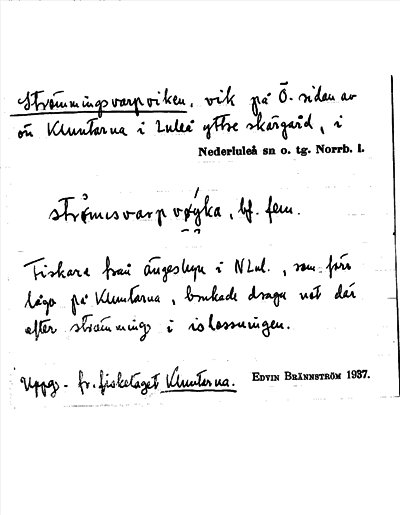 Strömmingsvarpviken, vik på Ö. sidan av
ön Kluntarna i Luleå yttre skärgård, i
Nederluleå sn o. tg. Norrb. l.
bf. fem.
Fiskare från ängesbyn i NLul., som förr
lågo på Kluntarna, brukade draga not där
efter strömming i islossningen.
Uppg. fr. fiskeläget Kluntarna. EDVIN BRÄNNSTRÖM 1937.